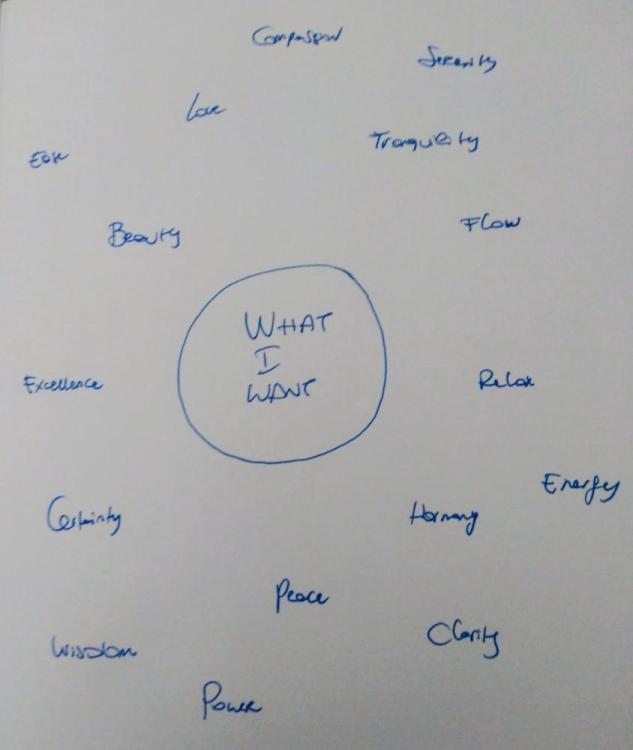 Compassion
Serenity
Love
Tranquility
Ease
Beauty
Flow
WHAT
I
WANT
Excellence
Relax
Energy
Certainty
Harmony
Peace
Clarity
Wisdom
Power